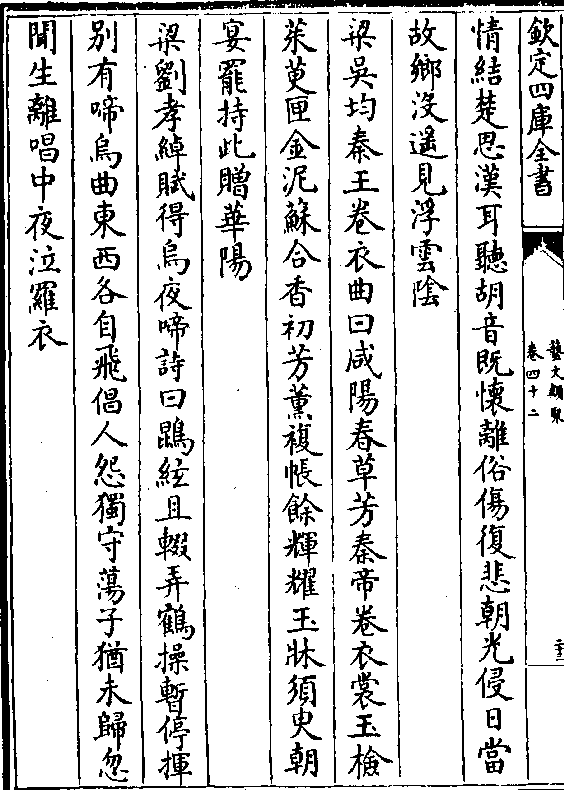 欽定四庫全書
藝文類聚
卷四十二
二十三
情結楚思漢耳聽胡音既懷離俗傷復悲朝光侵日當
故鄉沒遥見浮雲陰
梁吳均秦王卷衣曲曰咸陽春草芳秦帝卷衣裳玉檢
茱萸匣金泥蘇合香初芳薰複帳餘輝耀玉牀須臾朝
宴罷持此贈華陽
梁劉孝綽賦得烏夜啼詩曰鵾絃且輟弄鶴操暫停揮
别有啼烏曲東西各自飛倡人怨獨守蕩子猶未歸忽
聞生離唱中夜泣羅衣